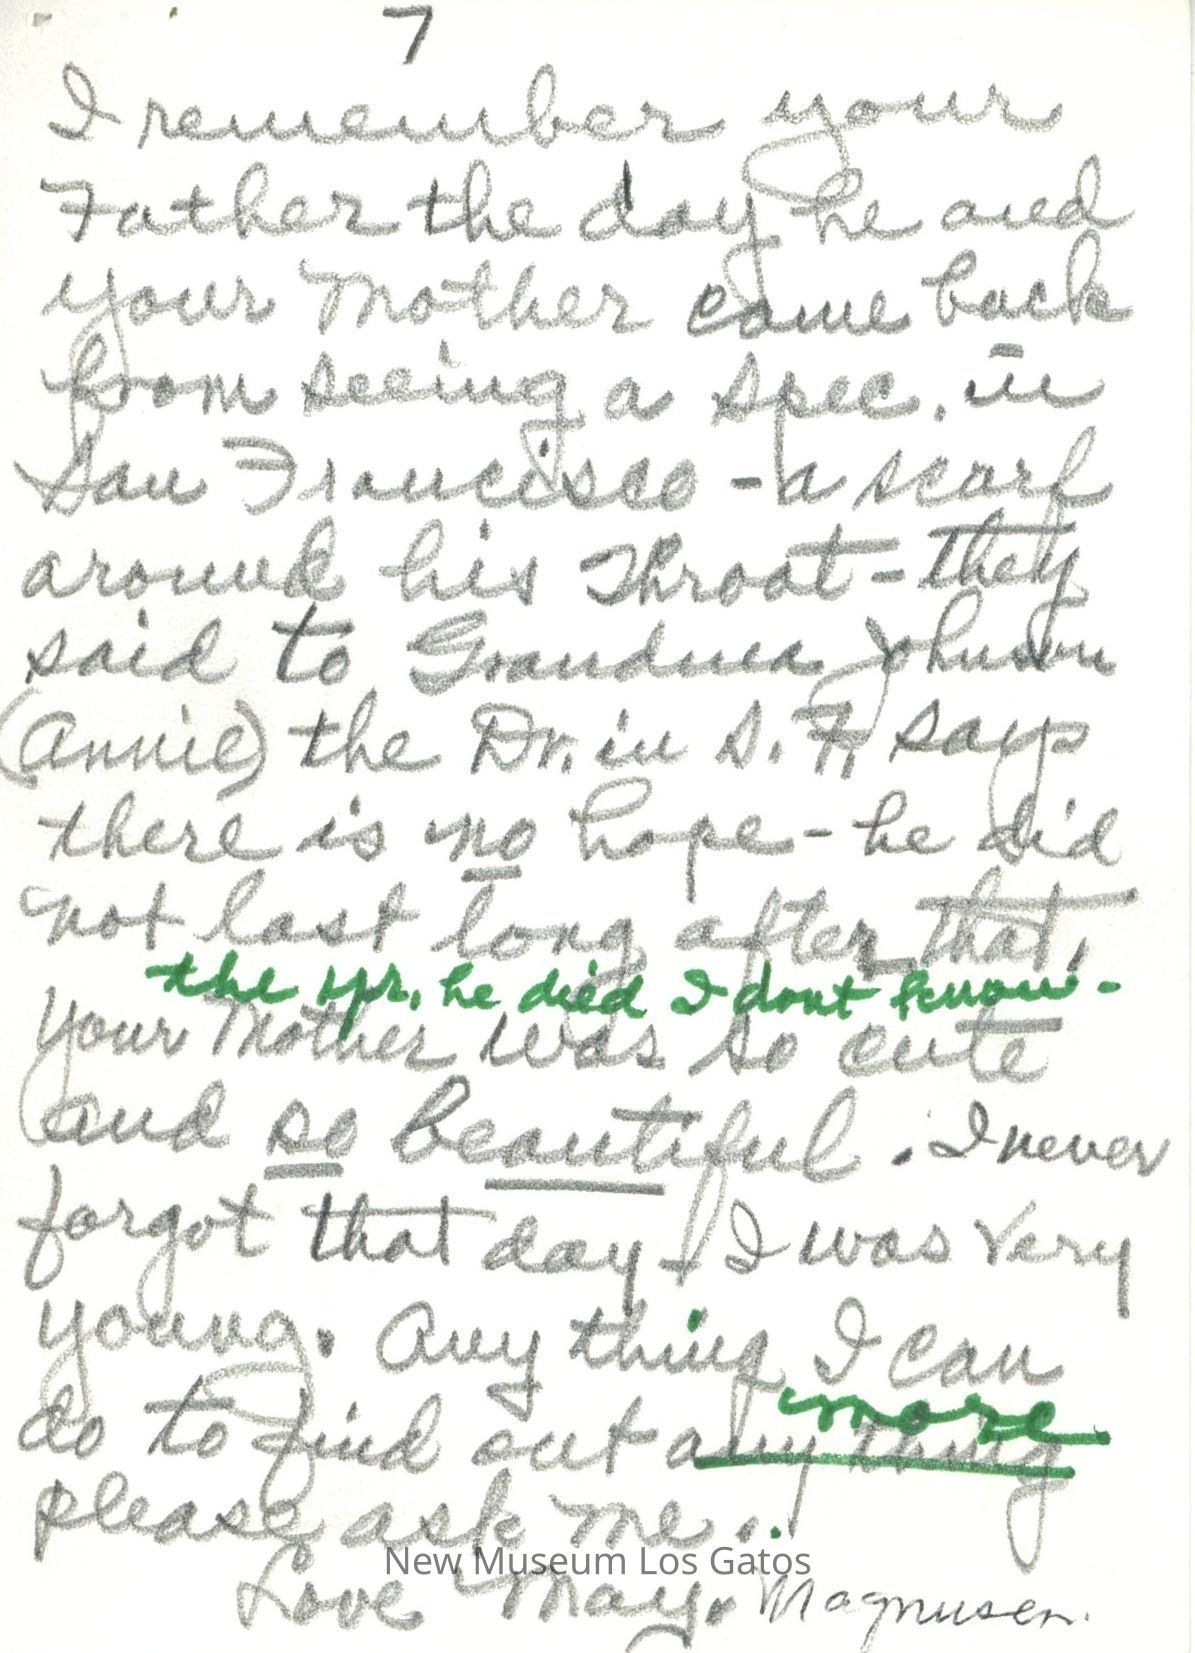 7
I remember your
Father the day he and
your Mother came back
from seeing a spec. in
San Francisco - a scarf
around his Throat - they
said to Grandma Johnson
(Annie) the Dr. in S. F. says
there is no hope - he did
not last long after that.
the yr. he died I dont know -
your Mother was so cute
and so beautiful. I never
forgot that day - I was very
young. Any thing I can
more
do to find out any thing
please ask me.
New Museum Los Gatos
Love May. Magnusen.